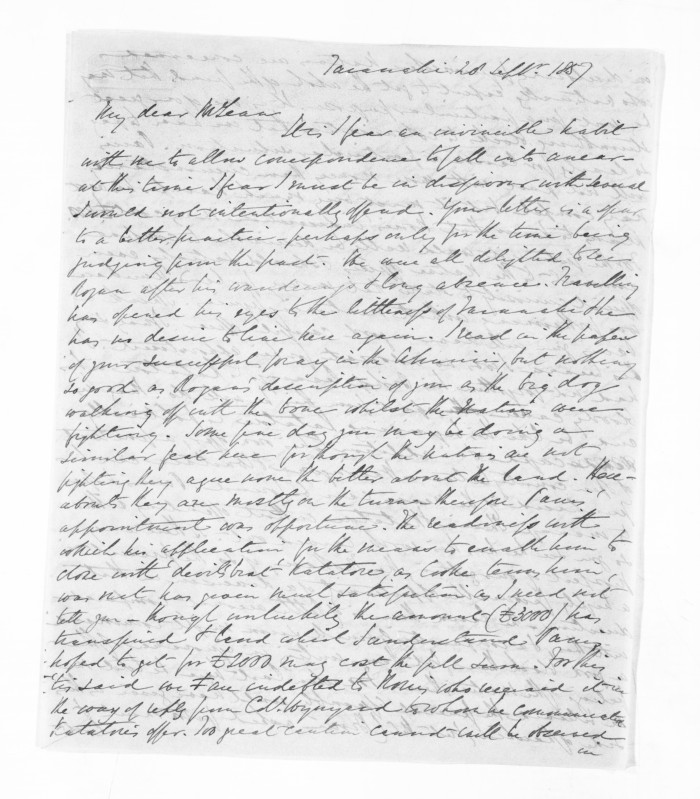 Taranaki 28 Septr. 1857
My dear McLean
It is I fear an invincible habit
with me to allow correspondence to fall into arrear -
at this time I fear I must be in disfavour with some
I would not intentionally offend. Your letter is a spur
to a better practice - perhaps only for the time being
judging from the past. We were all delighted to see
Rogan after his wanderings & long absence. Travelling
has opened his eyes to the littleness of Taranaki & he
has no desire to live here again. I read in the papers
of your successful foray in the Ahuriri, but nothing
so good as Rogan's description of you as the big dog
walking off with the bone whilst the Natives were
fighting. Some fine day you may be doing a
similar feat here for though the natives are not
fighting they agree none the better about the land. Here-
abouts they are mostly on the turn & therefore Parris'
appointment was opportune. The readiness with
which his application for the means to enable him to
close with 'devil's brat' Katatore, as Cooke terms him,
was met has given much satisfaction as I need not
tell you - though unluckily the amount (£3000) has
transpired & land which I understand Parris
hoped to get for £2000 may cost the full sum. For this
tis said we are indebted to who it in
the way of reply from Col. Wynyard to whom he communicated
Katatore's offer. Too great caution cannot well be observed
in